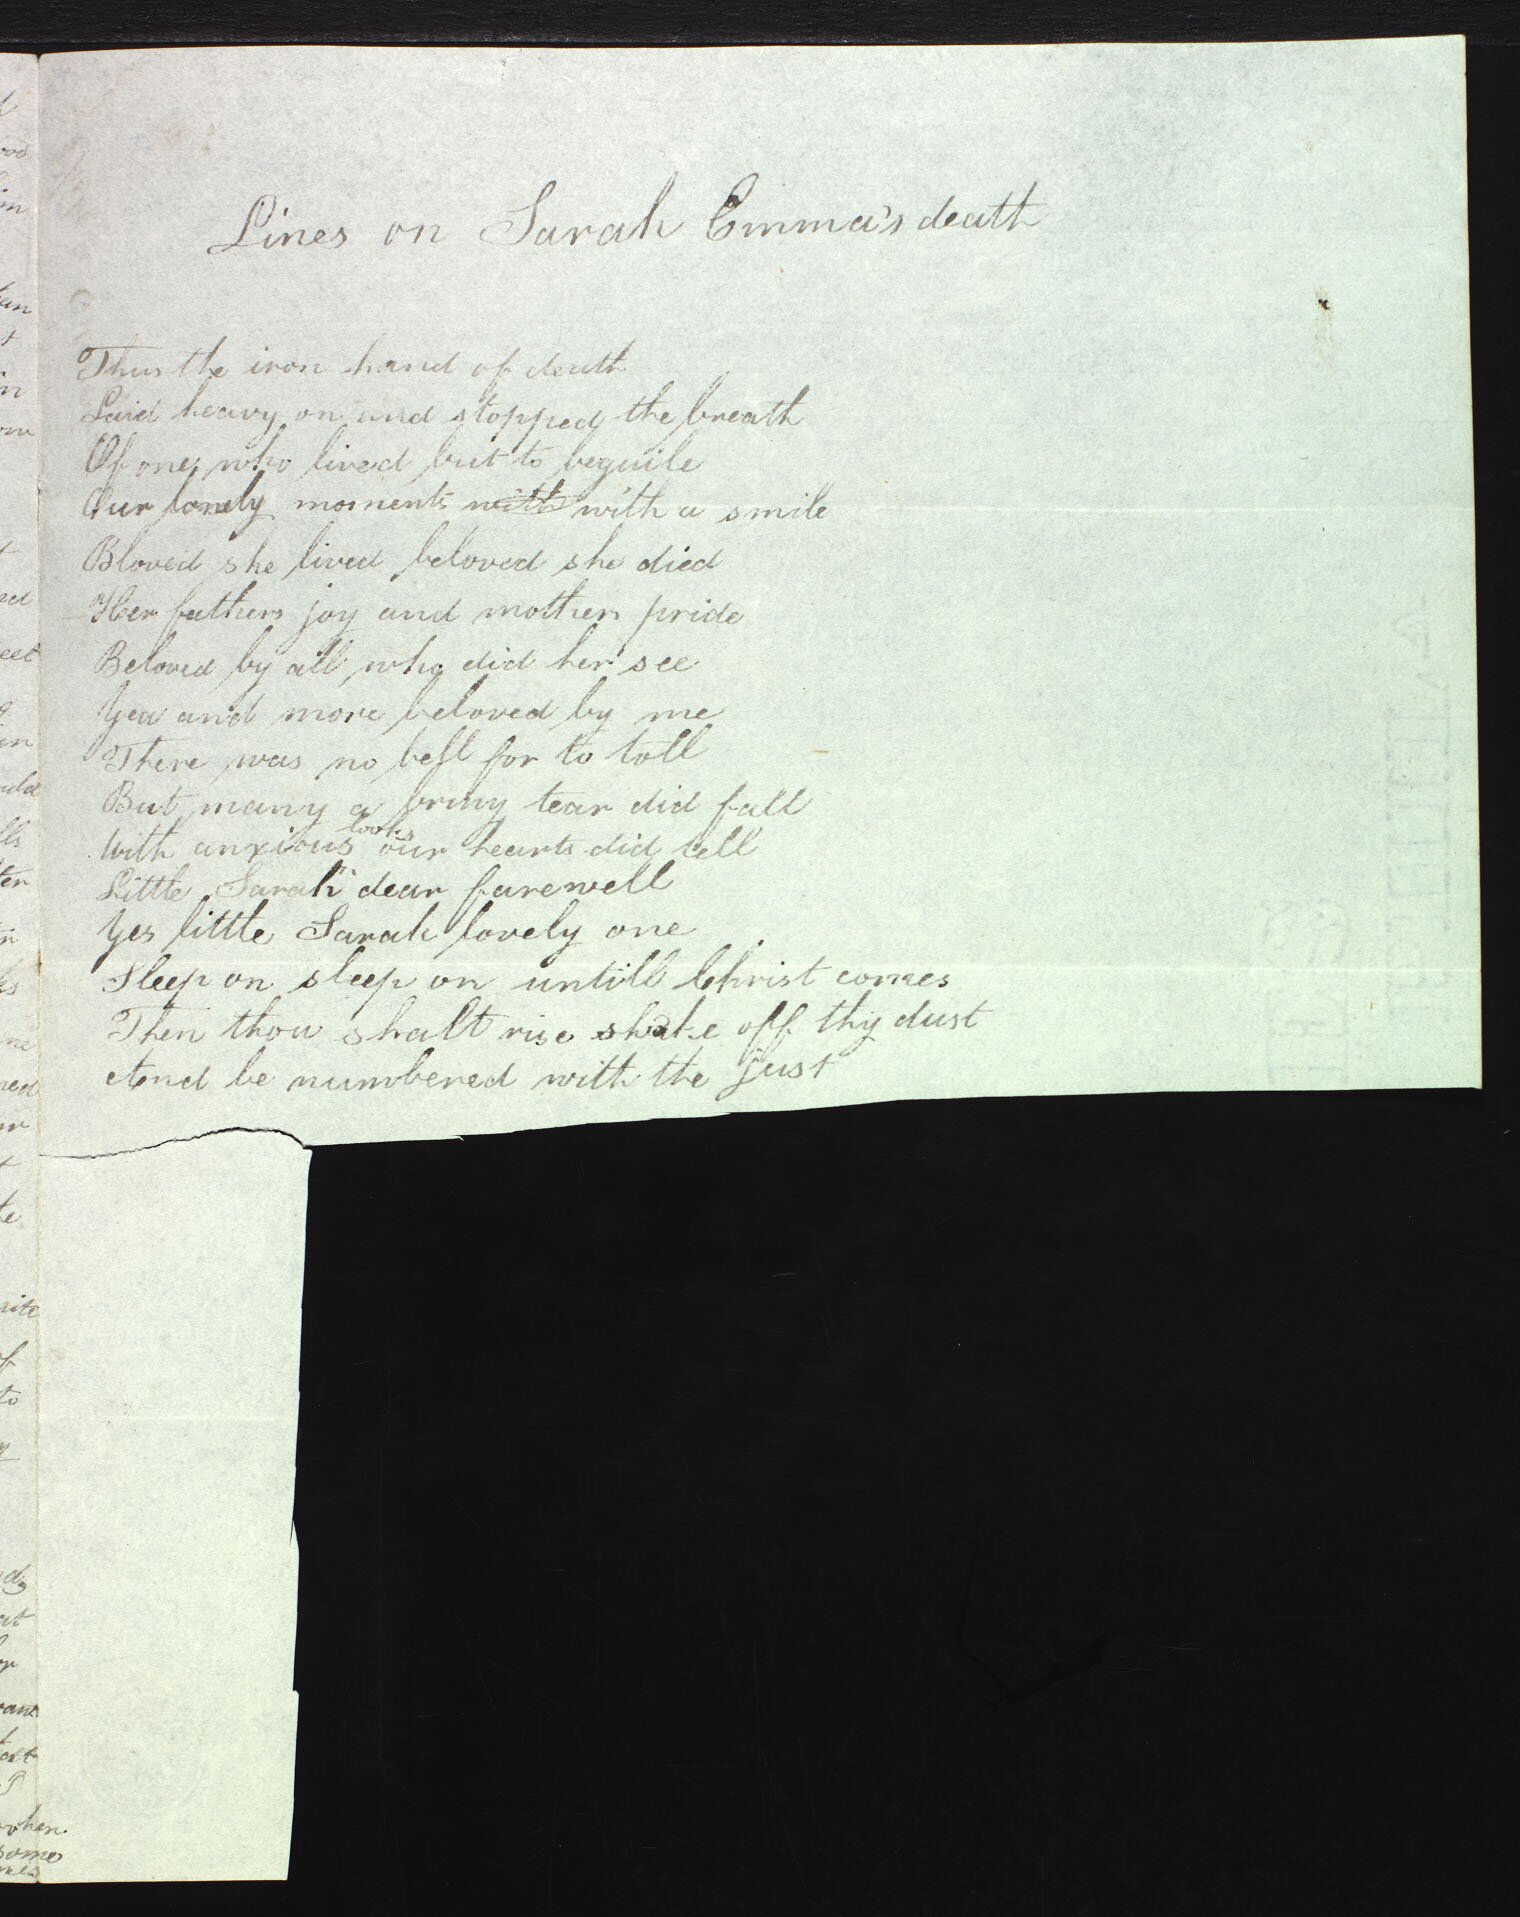 Lines on Sarah Emma's death
Thus the iron hand of death
Laid heavy on and stopped the breath
Of one who lived but to beguile
Our lonely moments with with a smile
Bloved she lived beloved she died
Her fathers joy and mothers pride
Beloved by all who did her see
Yea and more beloved by me
There was no bell for to toll
But many a briny tear did fall
With anxious looks our hearts did tell
Little Sarah dear farewell
Yes little Sarah lovely one
Sleep on sleep on untill Christ comes
Then thou shalt rise shake off thy dust
And be numbered with the just